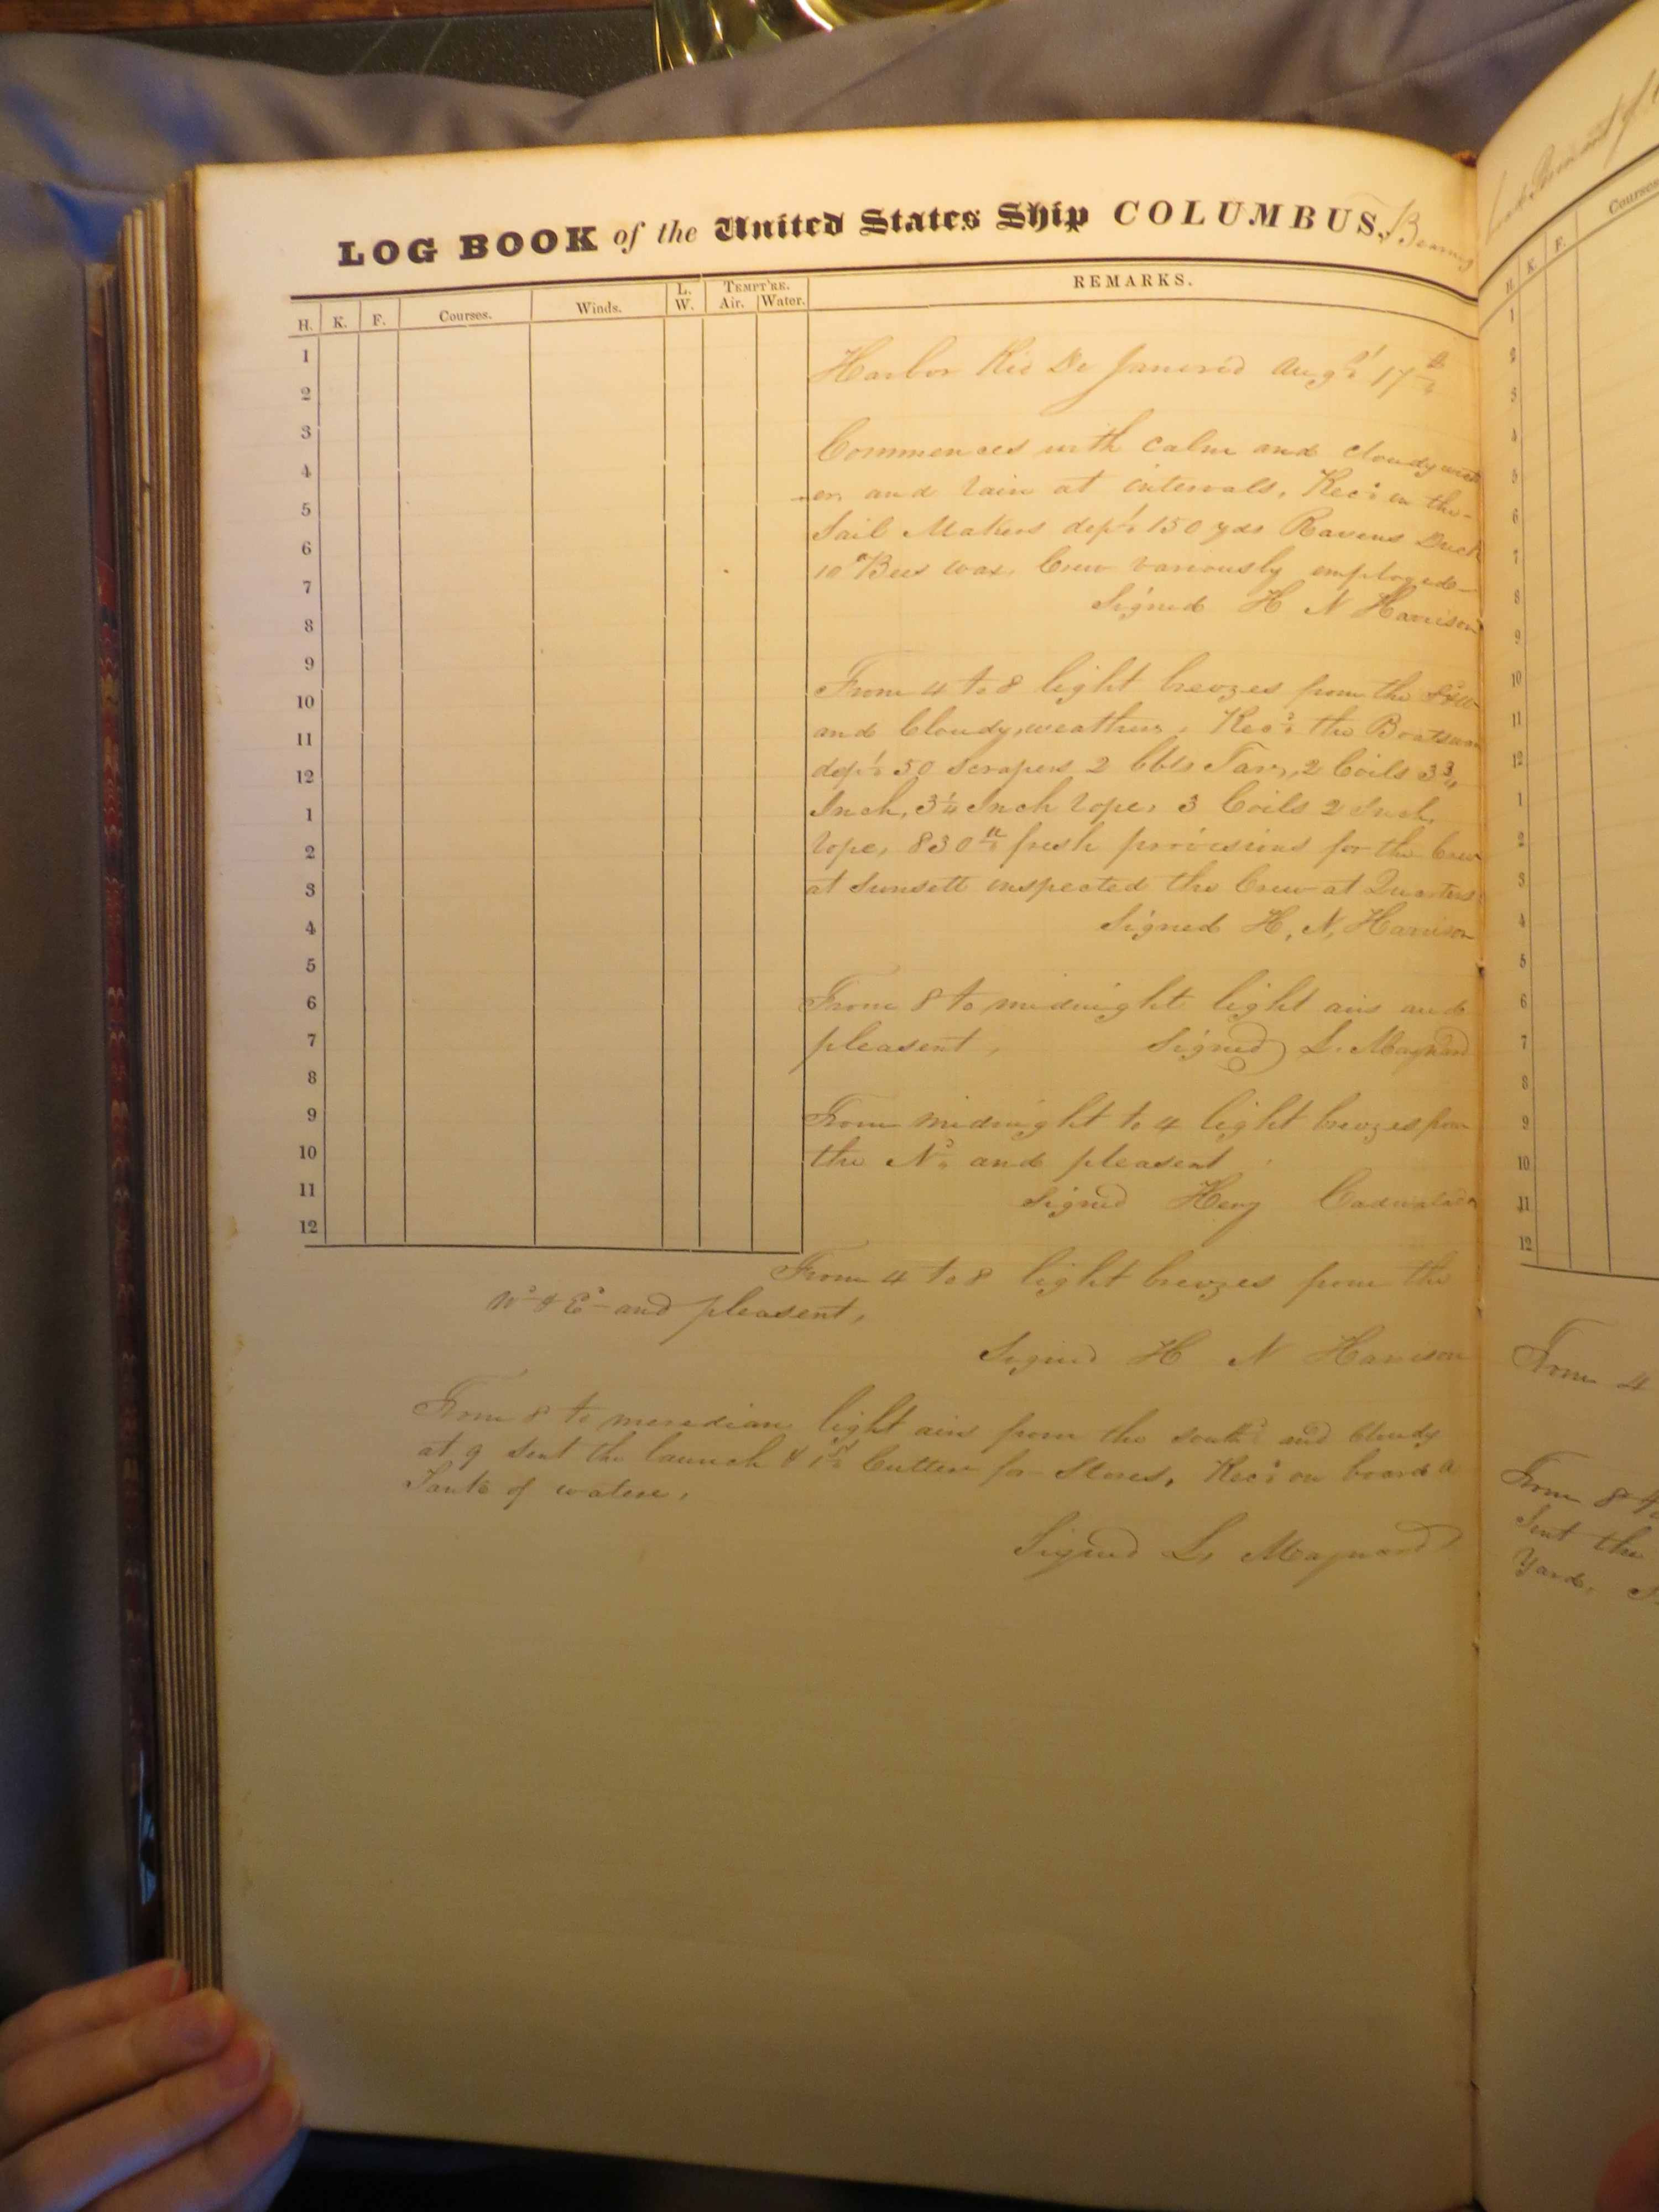 LOG BOOK of the United States Ship COLUMBUS. Bearing
H. K. F. Courses. Winds. L. W. TEMPT'RE. Air. Water. REMARKS.
1
2
3
4
5
6
7
8
9
10
11
12
1
2
3
4
5
6
7
8
9
10
11
12
Harbor Rio De Janerio Augt 17th
Commences with calm and cloudy weath
-er, and rain at intervals, Recd in the
Sail Makers dept 150 yds Ravens Duck
10 lb Bees wax, Crew variously employed
Signed H N Harrison
From 4 to 8 light breezes from the
and Cloudy weather, Recd the Boatswain
dept 50 Scrapers 2 bbls Tarr, 2 Coils 3 3/4
Inch, 3 1/4 Inch rope, 3 Coils 2 Inch
rope, 830 lb fresh provisions for the Crew
at Sunsett inspected the Crew at Quarters
Signed H. N, Harrison
From 8 to midnight light airs and
pleasent, Signed L. Maynard
From midnight to 4 light breezes from
the No and pleasent
Signed Heny Cadwalader
From 4 to 8 light breezes from the
No & Eo and pleasent,
Signed H N Harrison
From 8 to meredian light airs from the southd and Cloudy
at 9 Sent the launch & 1st Cutter for Stores, Recd on board a
Tank of watere,
Signed L, Maynard
H. K. F. Courses
1
2
3
4
5
6
7
8
9
10
11
12
1
2
3
4
5
6
7
8
9
10
11
12
From 4
From 8 to
Sent the
Yard,